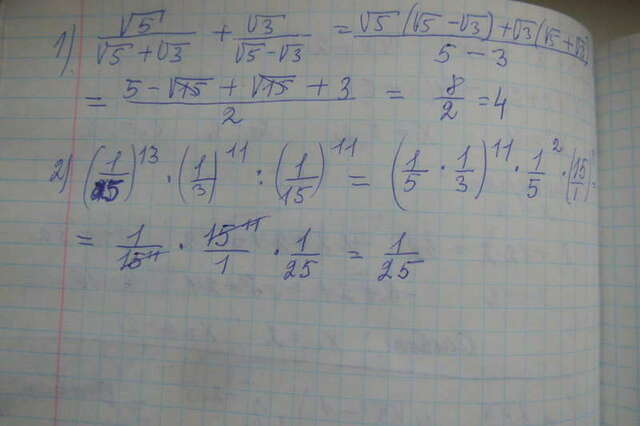 1) √5/(√5+√3) + √3/(√5-√3) = (√5(√5-√3)+√3(√5+√3))/(5-3)
= (5-√15+√15+3)/2 = 8/2 = 4
2) (1/5)^13 · (1/3)^11 : (1/15)^11 = (1/5 · 1/3)^11 · 1/5^2 · (15/1)
= 1/15^11 · 15^11/1 · 1/25 = 1/25